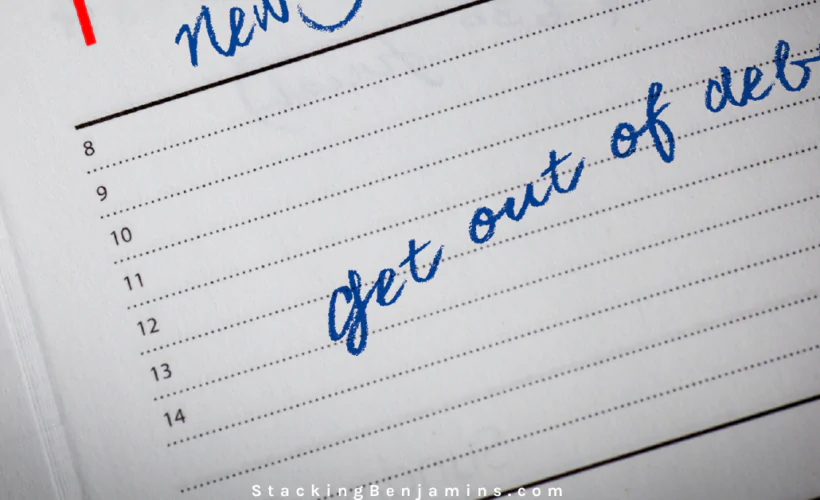 new
8
9
10
11
12
13
14
get out of deb
StackingBenjamins.com